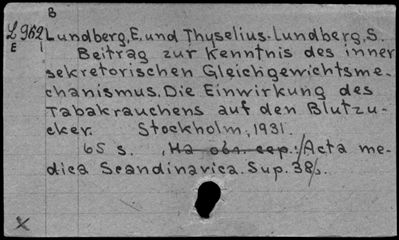 B
L 962 Lundberg, E. und Thyselius-Lundberg, S.
E
Beitrag zur Kenntnis des inner
sekretorischen Gleichgewichtsme-
chanismus. Die Einwirkung des
Tabakrauchens auf den Blutzu-
cker. Stockholm, 1931.
65 s. , На обл. сер.: /Acta me-
dica Scandinavica. Sup. 38/.
x